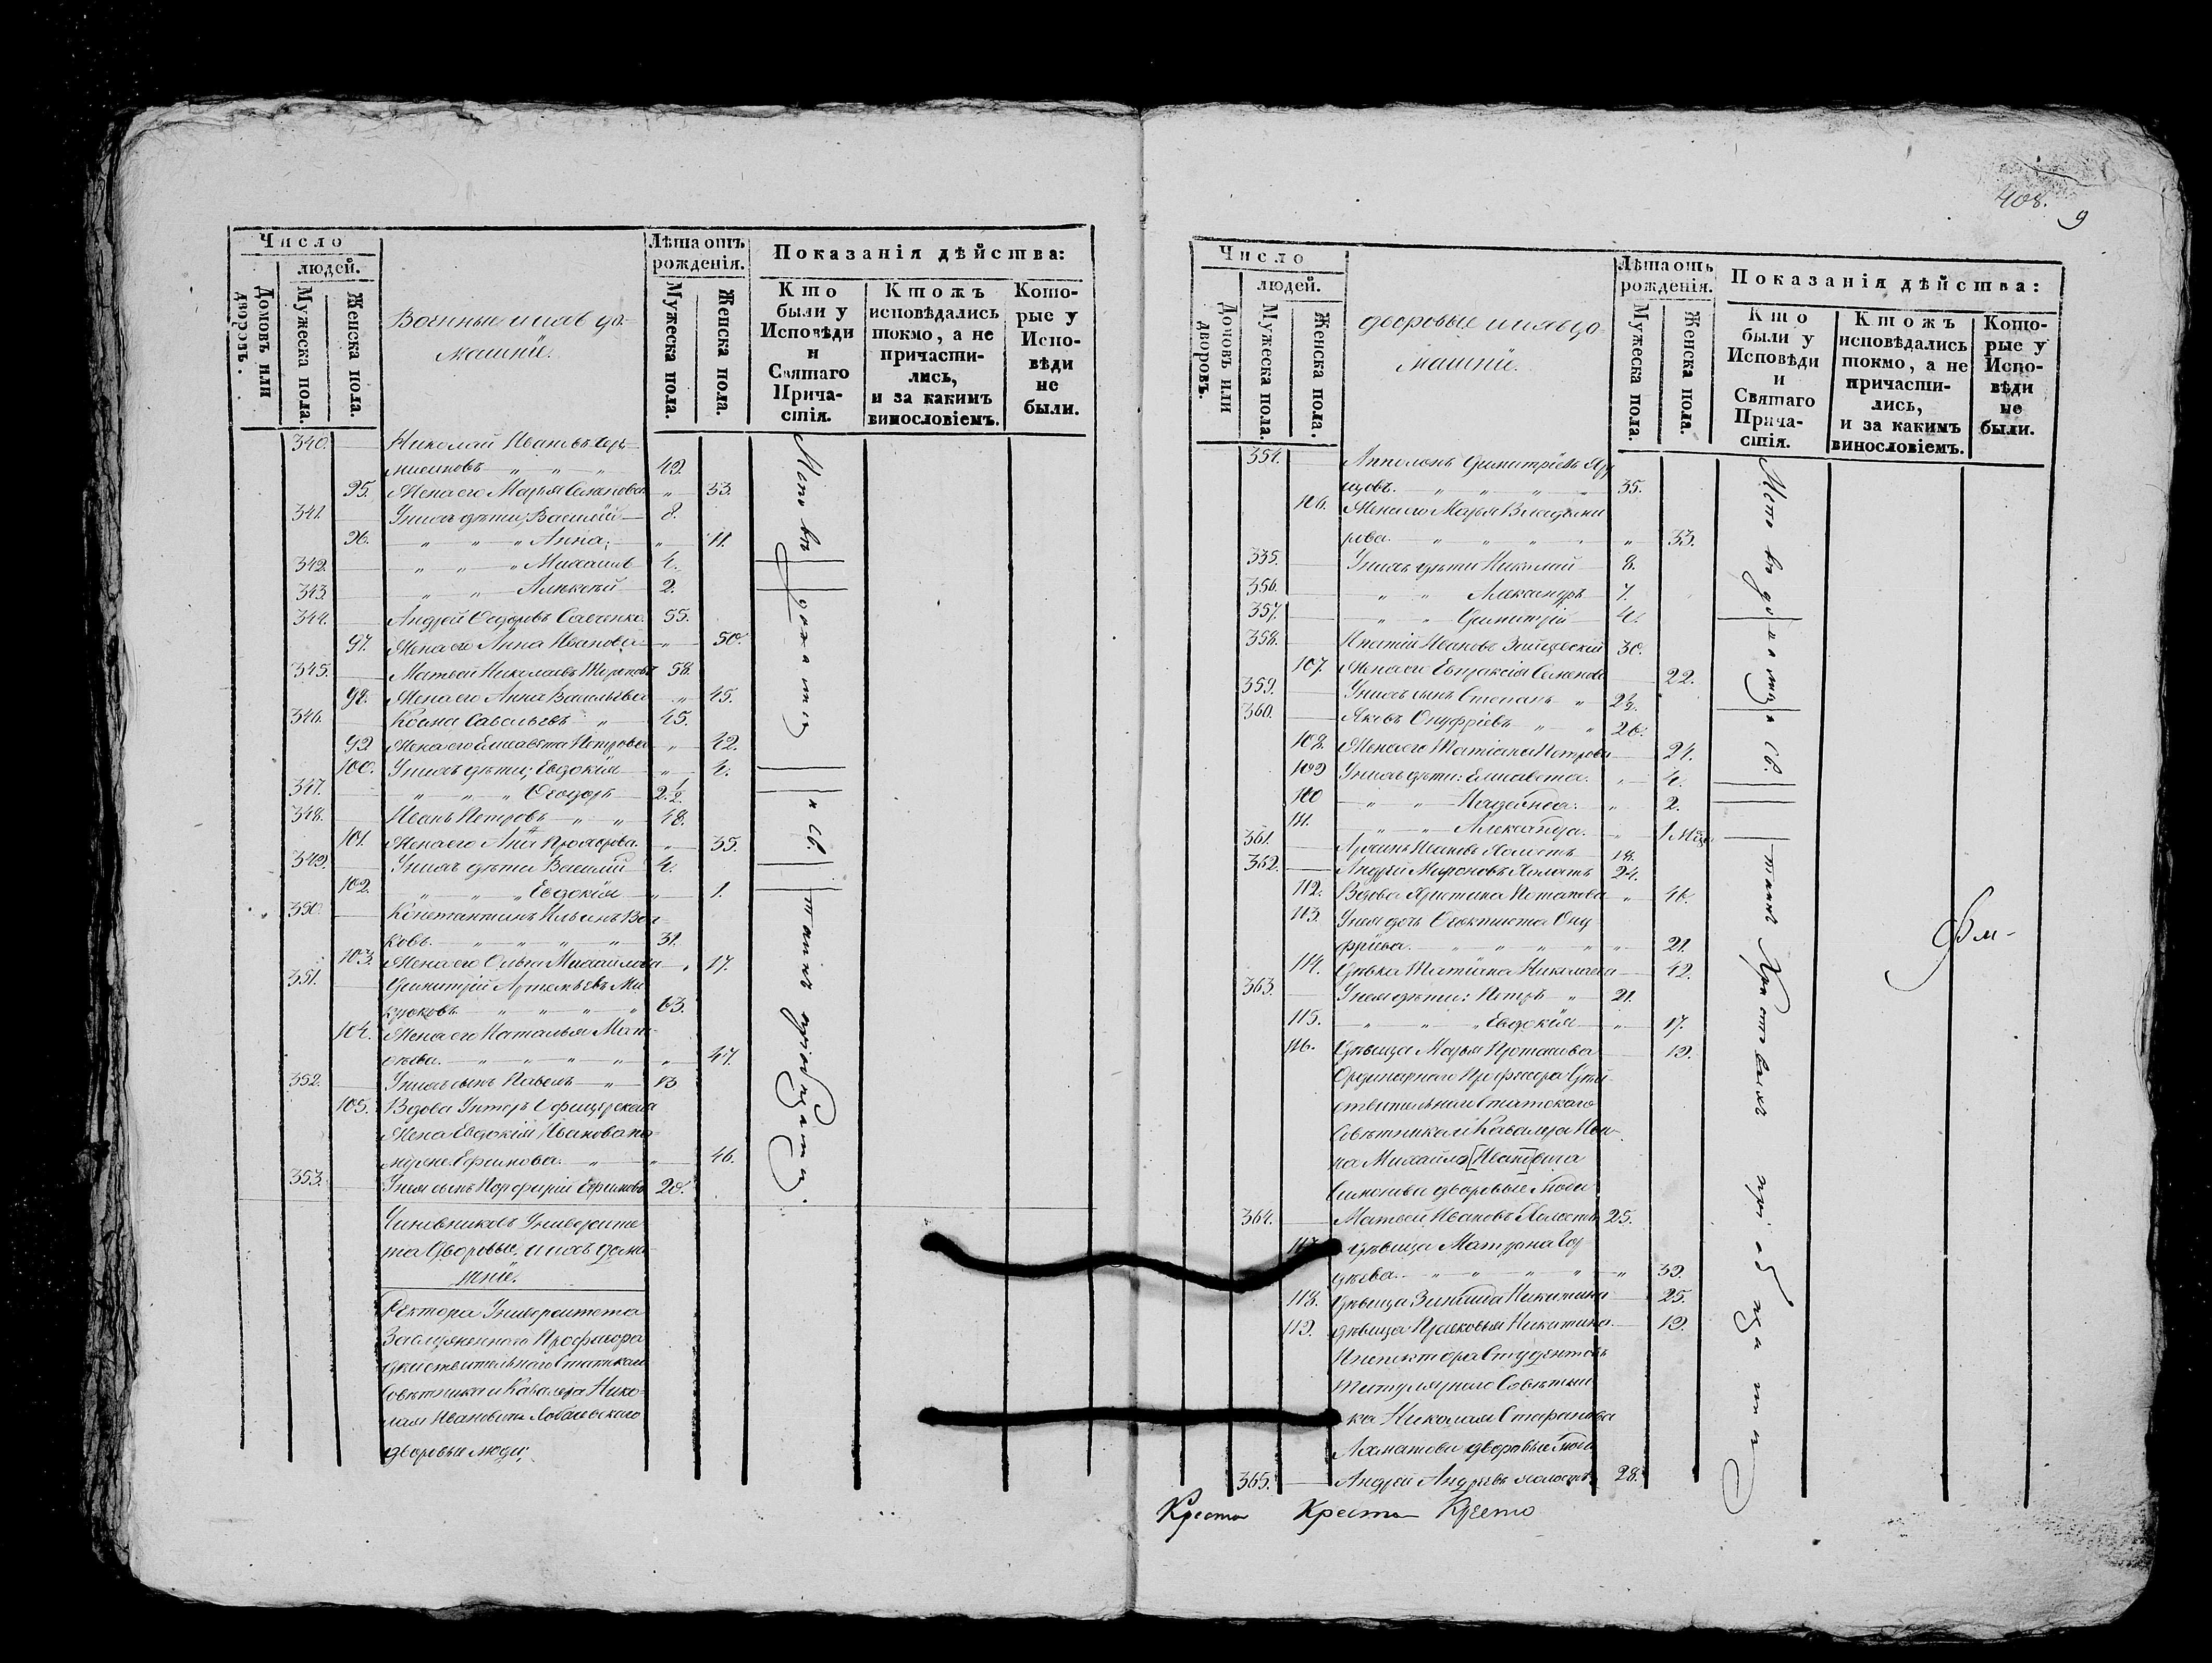 408.
9
Число
людей.
Домовъ или дворовъ.
Мужеска пола.
Женска пола.
Военные и ихъ до-
машніе.
Лѣта отъ
рожденія.
Мужеска пола.
Женска пола.
Показанія дѣйства:
Кто
были у
Исповѣди
и
Святаго
Прича-
стія.
Ктожъ
исповѣдались
токмо, а не
причасти-
лись,
и за какимъ
винословіемъ.
Кото-
рые у
Испо-
вѣди
не
были.
340. Николай Ивановъ
49.
95. Жена его Марья Семенова " 33.
341. У нихъ дѣти; Василій 8.
96. " " " Анна; " 11.
342. " " " Михаилъ 4.
343. " " Алексѣй 2.
344. Андрей Ѳедоровъ Савченко 55.
97. Жена его Анна Иванова " 50.
345. Матвей Николаевъ 58.
98. Жена его Анна Васильева " 45.
346. Козма Савельевъ " 45.
99 Жена его Елисавета Петрова " 42.
100. У нихъ дѣти; Евдокія " 4.
347. " " " Ѳеодоръ 2 1/2.
348. Иванъ Петровъ " " 48.
101. Жена его Анна Прохорова. " 35.
349. У нихъ дѣти Василій 4.
102. " " " Евдокія " 1.
350. Константинъ Ильинъ Вол-
ковъ. " " " " 31.
103. Жена его Ольга Михайлова " 17.
351. Димитрій Артемьевъ Ми-
крюковъ " " " " 63.
104. Жена его Наталья Мат-
вѣева. " " " " " 47.
352. У нихъ сынъ Павелъ " 13
105. Вдова Унтеръ Офицерская
Жена Евдокія Иванова по
мужѣ Ефимова. " " 46.
353. У ней сынъ Порфирій Ефимовъ 20.
Чиновниковъ Университе
та Дворовые, и ихъ дома
шніе.
Ректора Университета
Заслуженнаго Профессора
дѣйствительнаго Статскаго
Совѣтника и Кавалера Нико-
лая Ивановича Лобачевскаго
дворовые люди;
Исповѣдались и Св. Таинъ пріобщались.
Число
людей.
Домовъ или дворовъ.
Мужеска пола.
Женска пола.
дворовые и ихъ до
машніе.
Лѣта отъ
рожденія.
Мужеска пола.
Женска пола.
Показанія дѣйства:
Кто
были у
Исповѣди
и
Святаго
Прича-
стія.
Ктожъ
исповѣдались
токмо, а не
причасти-
лись,
и за какимъ
винословіемъ.
Кото-
рые у
Испо-
вѣди
не
были.
354. Апполонъ Димитріевъ
цовъ. " " " " 35.
106. Жена его Марья Владими
рова " " " " " 33.
335. У нихъ дѣти Николай 8.
356. " " Александръ 7.
357. " " Димитрій 4.
358. Ипатій Ивановъ 30.
107. Жена его Евпраксія Семенова 22.
359. У нихъ сынъ Степанъ " 2 1/2.
360. Яковъ Онуфріевъ " " 26.
108. Жена его Татіана Петрова 24.
109 У нихъ дѣти: Елисавета. " 4.
100 " " " 2.
111. " " Александра. " 1 Мѣс.
361. Ивановъ Холостъ 18.
362. Андрей Мироновъ Холостъ 24.
112. Вдова Христина Потапова " 44.
113. У ней дочь Ѳеоктиста Ону
фріева. " " " " " 21.
114. Дѣвка Татіана Николаева 42.
363. У ней дѣти: Петръ " 21.
115. " " " Евдокія " 17.
116. Дѣвица Марья Потапова 19.
Ординарнаго Профессора Дѣй-
ствительнаго Статскаго
Совѣтника и Кавалера Ива-
на Михайло[Иван]вича
Симонова дворовые люди
364. Матвей Ивановъ Холостъ 25.
117. дѣвица Матрона Сер
гѣева. " " " " " 39.
118. дѣвица Зинаида Никитина 25.
119. дѣвица Прасковья Никитина 19.
Инспектора Студентовъ
Титулярнаго Совѣтни
ка Николая Стефанова
Ахматова дворовые люди
365. Андрей Андреевъ холостъ. 28.
Кресто Кресто Кресто